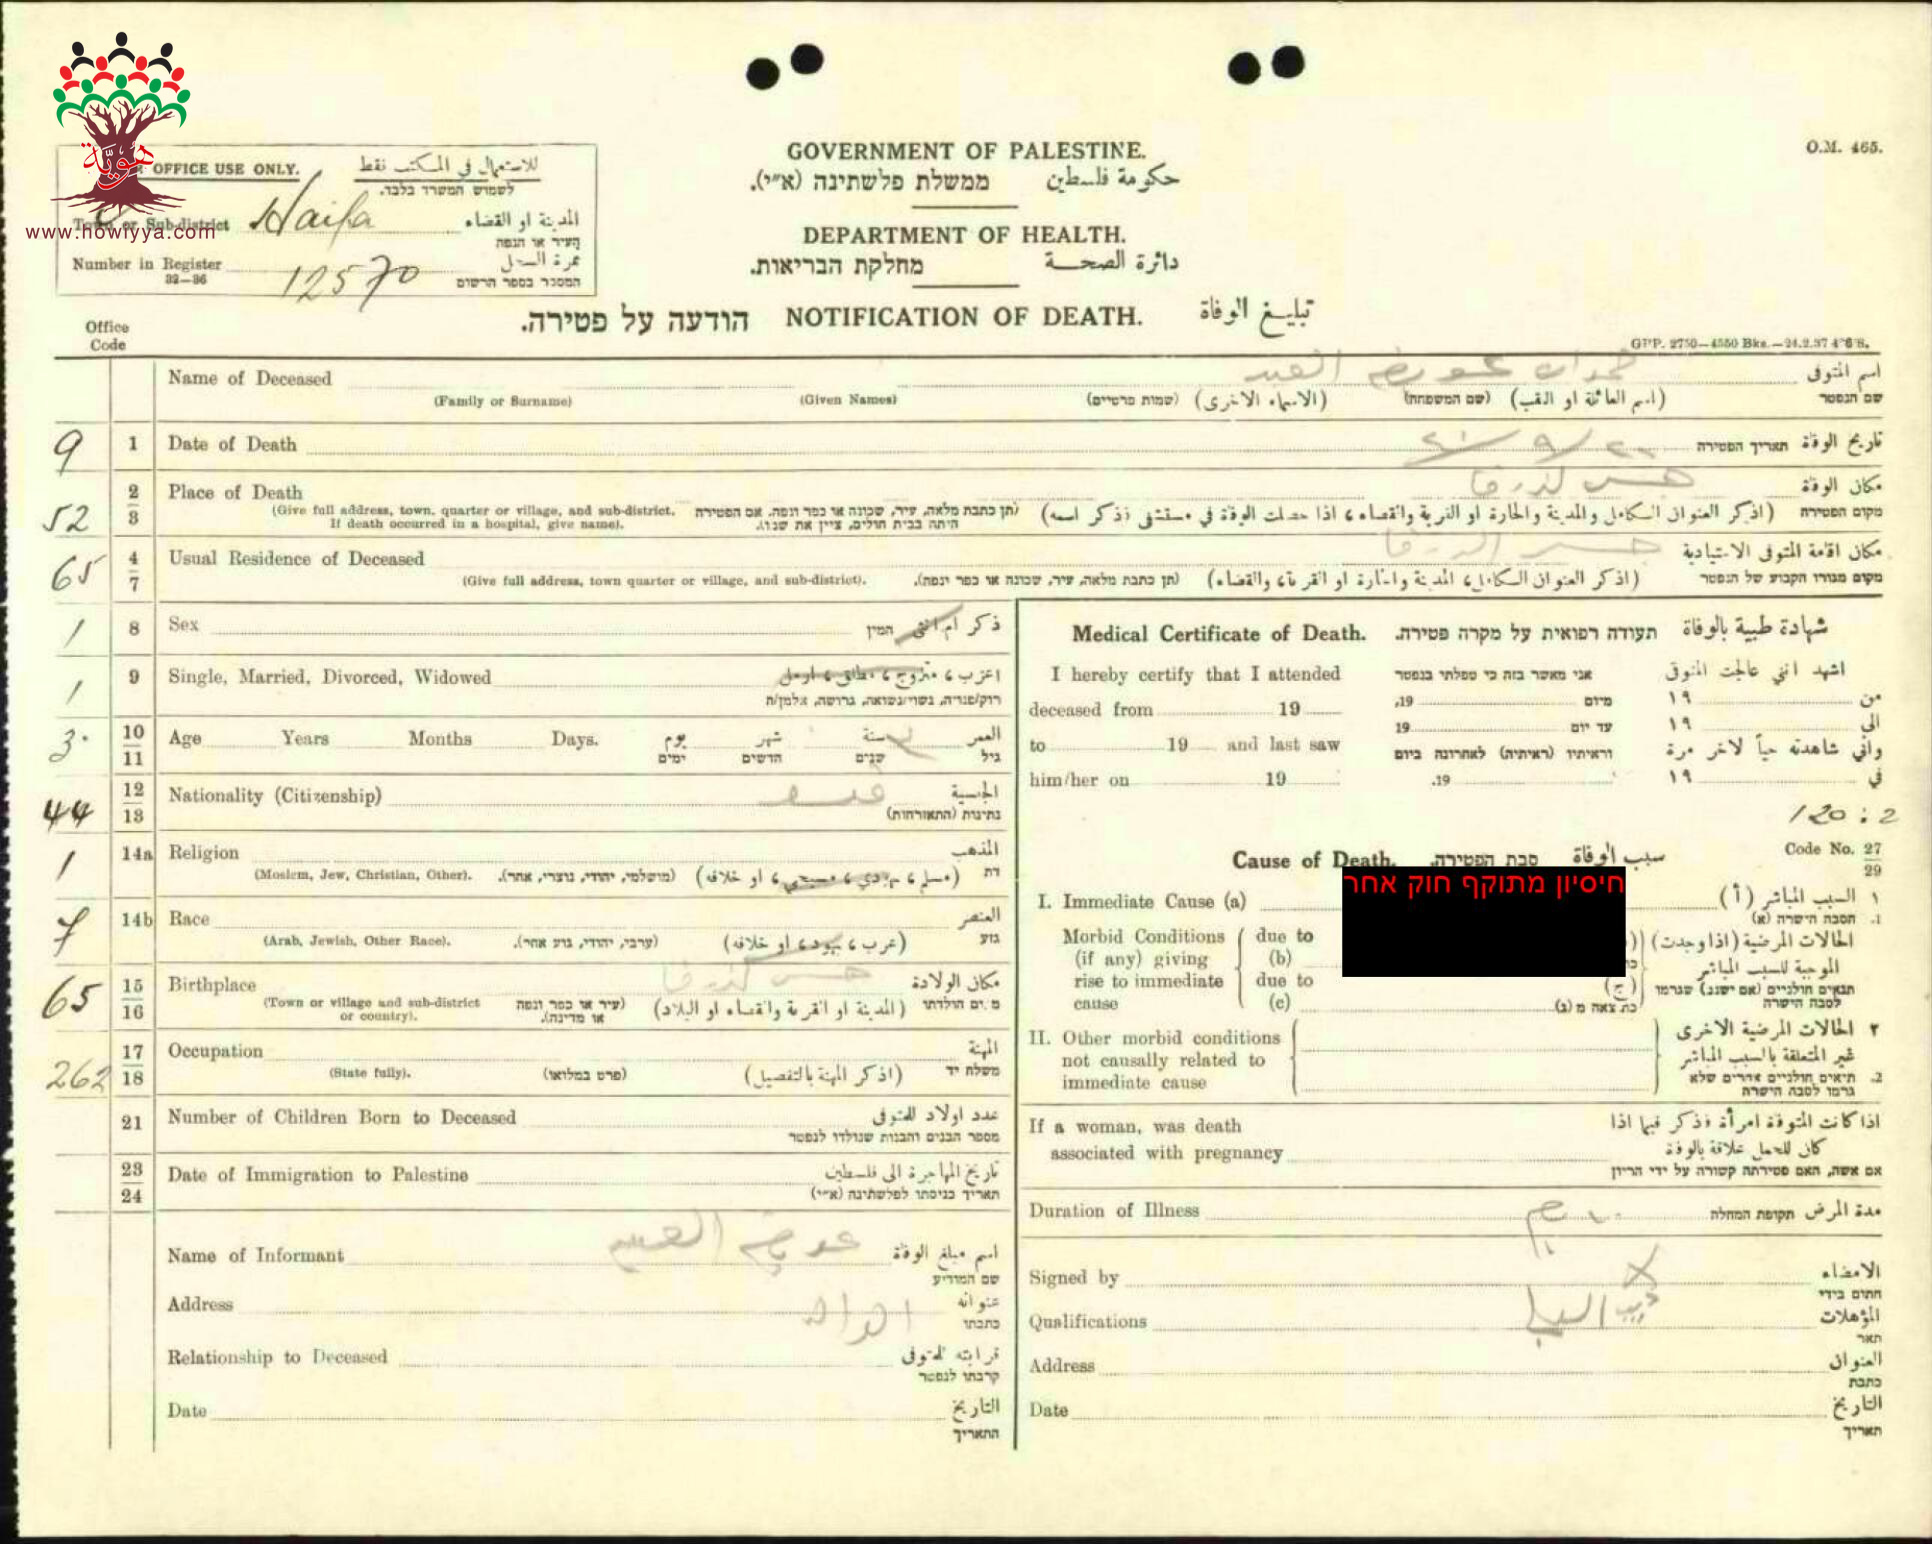 هوية
www.howiyya.com
OFFICE USE ONLY. للاستعمال في المكتب فقط
לשמוש המשרד בלבד.
Town or Sub-district Haifa المدينة او القضاء
העיר או הנפה
Number in Register 12570 نمرة السجل
32—36 המספר בספר הרשום
GOVERNMENT OF PALESTINE.
ממשלת פלשתינה (א״י). حكومة فلسطين
DEPARTMENT OF HEALTH.
מחלקת הבריאות. دائرة الصحة
O.M. 465.
הודעה על פטירה. NOTIFICATION OF DEATH. تبليغ الوفاة
Office
Code
GPP. 2750—4550 Bks.—24.2.37
Name of Deceased العبد اسم المتوفى
(Family or Surname) (Given Names) (שמות פרטיים) (الاسماء الاخرى) (שם המשפחה) (اسم العائلة او اللقب) שם הנפטר
9 1 Date of Death ٢٠/٩/٤١ תאריך הפטירה تاريخ الوفاة
52 2 3 Place of Death جسر الزرقا مكان الوفاة
(Give full address, town, quarter or village, and sub-district.
If death occurred in a hospital, give name).
(תן כתבת מלאה, עיר, שכונה או כפר ונפה. אם הפטירה
היתה בבית חולים, ציין את שמו).
(اذكر العنوان الكامل والمدينة والحارة او القرية والقضاء، اذا حصلت الوفاة في مستشفى فذكر اسمه) מקום הפטירה
65 4 7 Usual Residence of Deceased جسر الزرقا مكان اقامة المتوفى الاعتيادية
(Give full address, town quarter or village, and sub-district). (תן כתבת מלאה, עיר, שכונה או כפר ונפה). (اذكر العنوان الكامل، المدينة والحارة او القرية، والقضاء) מקום מגוריו הקבוע של הנפטר
1 8 Sex המין ذكر ام انثى
1 9 Single, Married, Divorced, Widowed اعزب، متزوج، مطلق، ارمل
רוק/פנויה, נשוי/נשואה, גרוש/ה, אלמן/ה
3 10 11 Age Years Months Days. يوم شهر سنة العمر
ימים חדשים שנים גיל
44 12 13 Nationality (Citizenship) الجنسية
נתינות (התאזרחות)
1 14a Religion المذهب
(Moslem, Jew, Christian, Other). (מושלמי, יהודי, נוצרי, אחר). (مسلم، يهودي، مسيحي، او خلافه) דת
7 14b Race العنصر
(Arab, Jewish, Other Race). (ערבי, יהודי, גזע אחר). (عرب، يهود، او خلافه) גזע
65 15 16 Birthplace جسر الزرقا مكان الولادة
(Town or village and sub-district
or country).
(עיר או כפר ונפה
או מדינה).
(المدينة او القرية والقضاء او البلاد) מקום הולדתו
262 17 18 Occupation المهنة
(State fully). (פרט במלואו) (اذكر المهنة بالتفصيل) משלח יד
21 Number of Children Born to Deceased عدد اولاد المتوفى
מספר הבנים והבנות שנולדו לנפטר
23 24 Date of Immigration to Palestine تاريخ المهاجرة الى فلسطين
תאריך כניסתו לפלשתינה (א״י)
Name of Informant العبد اسم مبلغ الوفاة
שם המודיע
Address عنوانه
כתבתו
Relationship to Deceased قرابته للمتوفى
קרבתו לנפטר
Date التاريخ
התאריך
Medical Certificate of Death. תעודה רפואית על מקרה פטירה. شهادة طبية بالوفاة
I hereby certify that I attended אני מאשר בזה כי טפלתי בנפטר اشهد انني عالجت المتوفى
deceased from 19 19, מיום من ١٩
to 19 and last saw 19 עד יום الى ١٩
וראיתיו (ראיתיה) לאחרונה ביום واني شاهدته حياً لاخر مرة
him/her on 19 19. في ١٩
120:2
Cause of Death. סבת הפטירה. سبب الوفاة Code No. 27 29
חיסיון מתוקף חוק אחר
I. Immediate Cause (a) ١ السبب المباشر (أ)
1. הסבה הישרה (א)
Morbid Conditions due to الحالات المرضية (اذا وجدت)
(if any) giving (b) الموجبة للسبب المباشر
rise to immediate due to תנאים חולניים (אם ישנם) שגרמו
cause (c) (ج) לסבה הישרה
כתוצאה מ (ג)
II. Other morbid conditions ٢ الحالات المرضية الاخرى
not causally related to غير المتعلقة بالسبب المباشر
immediate cause 2. תנאים חולניים אחרים שלא
גרמו לסבה הישרה
If a woman, was death اذا كانت المتوفاة امرأة فذكر فيما اذا
associated with pregnancy كان للحمل علاقة بالوفاة
אם אשה, האם פטירתה קשורה על ידי הריון
Duration of Illness תקופת המחלה مدة المرض
Signed by الامضاء
חתום בידי
Qualifications المؤهلات
תאר
Address العنوان
כתבת
Date التاريخ
תאריך